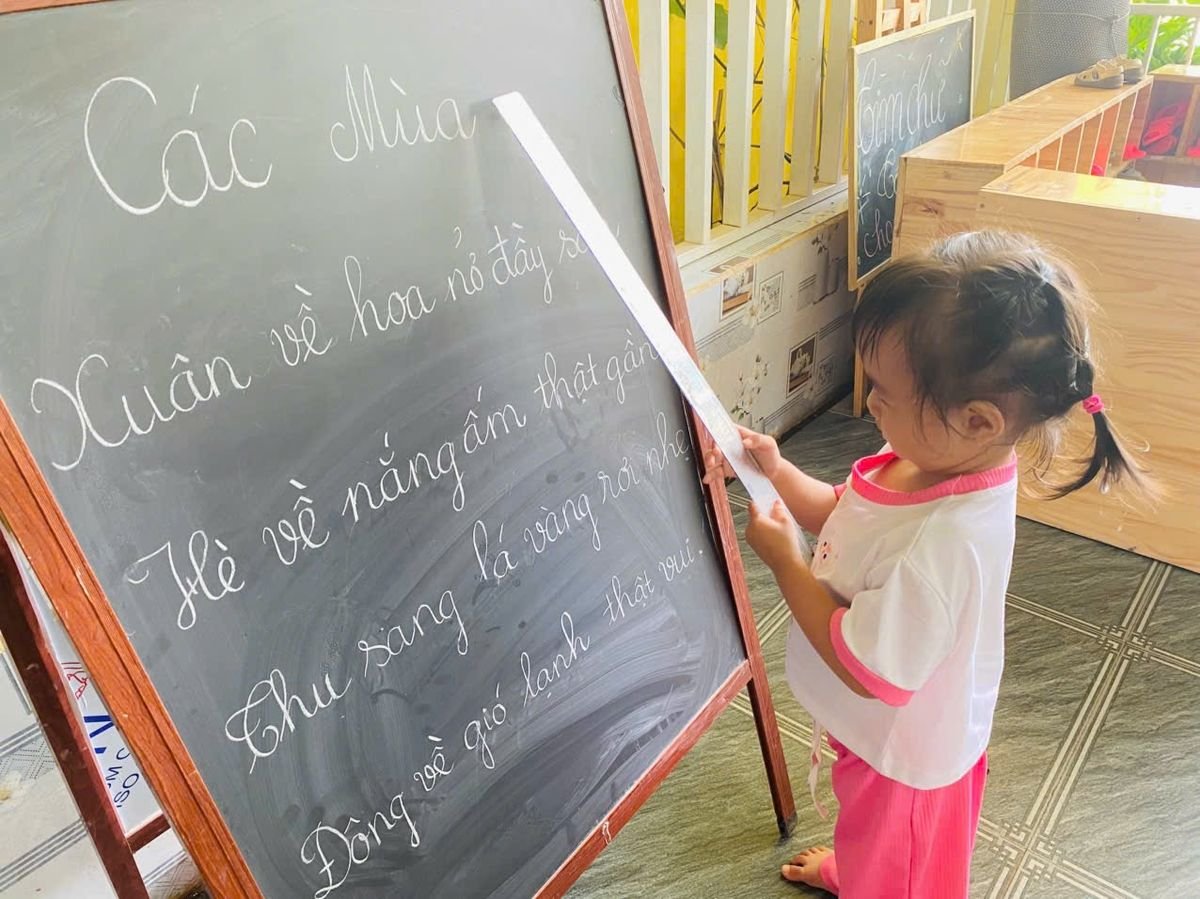 Các Mùa
Xuân về hoa nở đầy
Hè về nắng ấm thật gần
Thu sang lá vàng rơi nhẹ
Đông về gió lạnh thật vui.
Tìm chữ